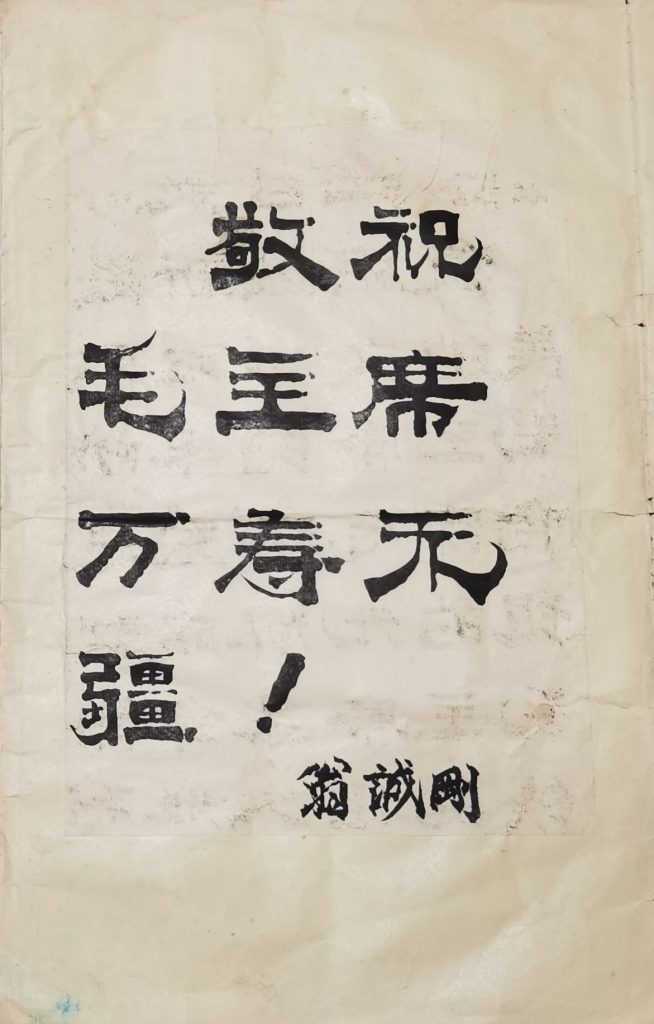 敬祝
毛主席
万寿无
疆！
翁誠剛